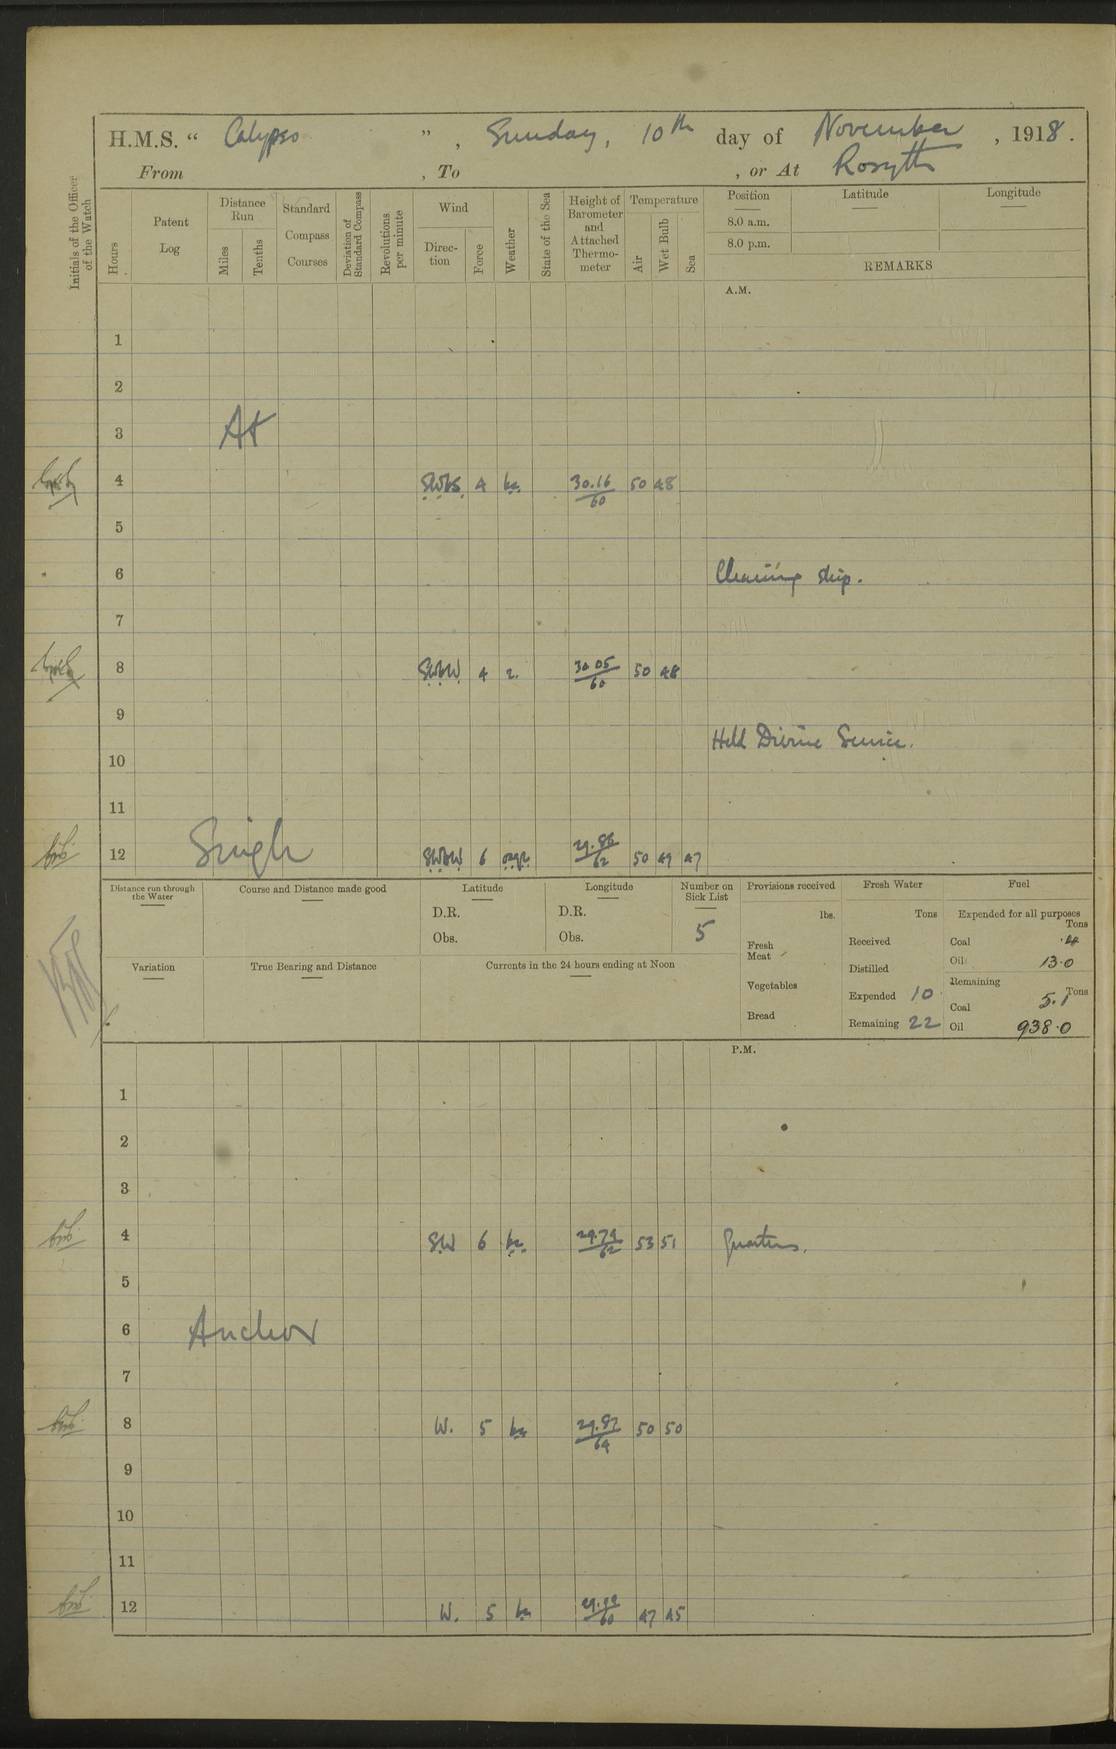 H.M.S. " Calypso ", Sunday, 10th day of November, 1918.
From , To , or At Rosyth
Initials of the Officer of the Watch
Hours
Patent Log
Distance Run
Miles
Tenths
Standard Compass Courses
Deviation of Standard Compass
Revolutions per minute
Wind
Direction
Force
Weather
State of the Sea
Height of Barometer and Attached Thermometer
Temperature
Air
Wet Bulb
Sea
Position Latitude Longitude
8.0 a.m.
8.0 p.m.
REMARKS
A.M.
1
2
3 At
4 SWbS 4 bc 30.16/60 50 48
5
6 Cleaning ship.
7
8 SWbW 4 30.05/60 50 48
9
Held Divine Service.
10
11
12 Single SWbW 6 29.86/62 50 49 47
Distance run through the Water
Course and Distance made good
Latitude
D.R.
Obs.
Longitude
D.R.
Obs.
Number on Sick List
5
Variation
True Bearing and Distance
Currents in the 24 hours ending at Noon
Provisions received
lbs.
Fresh Meat
Vegetables
Bread
Fresh Water
Tons
Received
Distilled
Expended 10
Remaining 22
Fuel
Expended for all purposes
Tons
Coal .4
Oil 13.0
Remaining
Tons
Coal 5.1
Oil 938.0
P.M.
1
2
3
4 SW 6 bc 29.79/62 53 51 Quarters.
5
6 Anchor
7
8 W. 5 bc 29.87/64 50 50
9
10
11
12 W. 5 bc 47 45